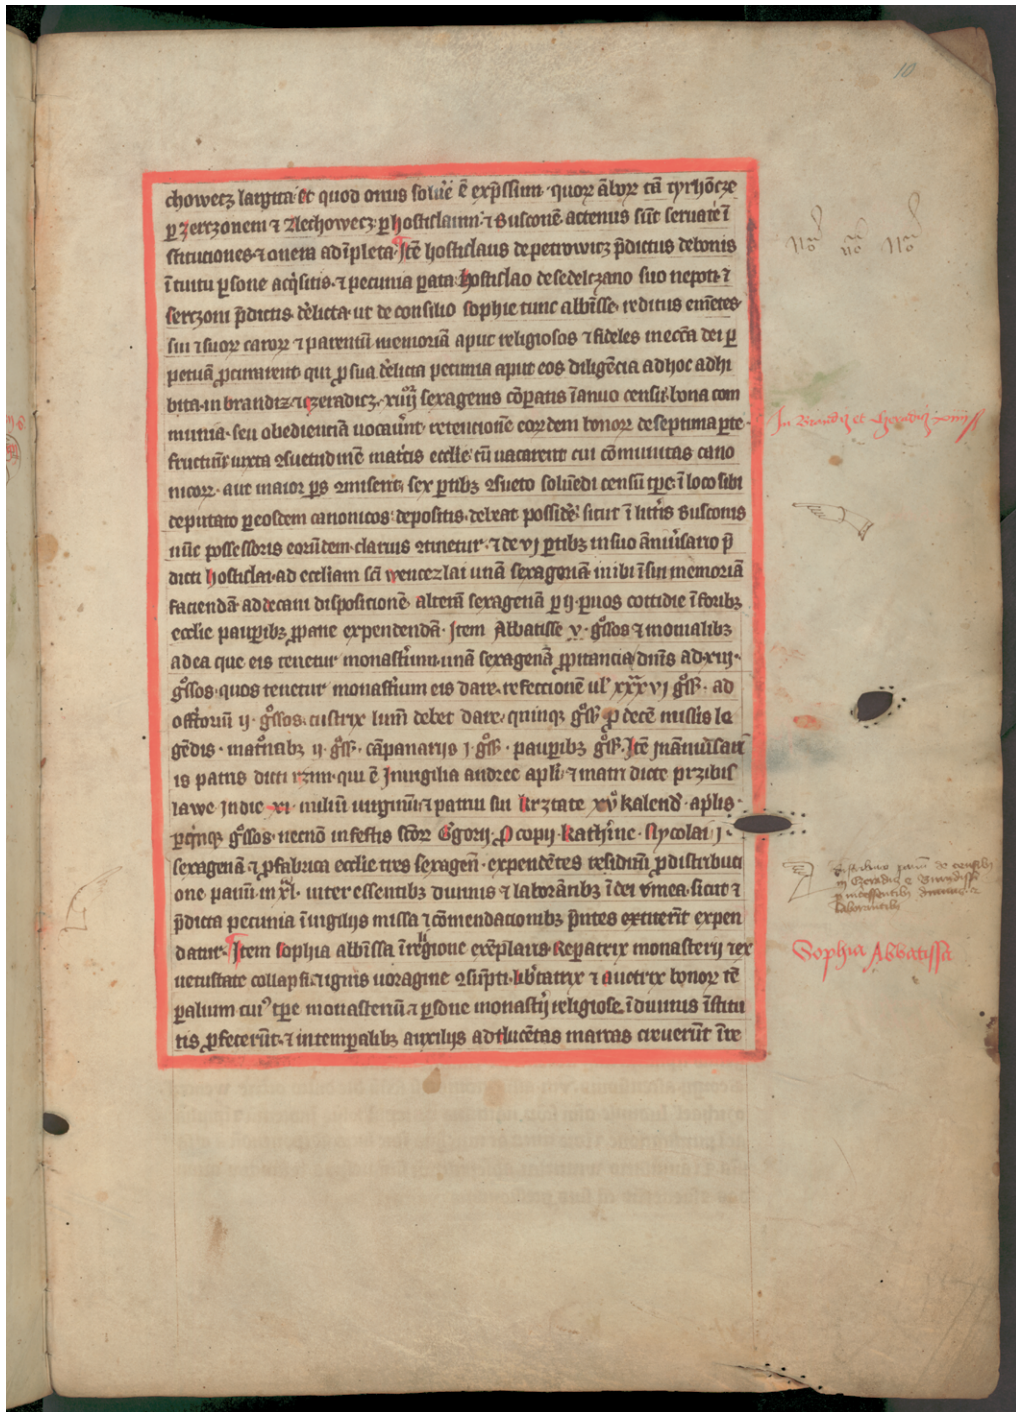 10
chowecz largita et quod onus soluẽ ẽ exp̃ssum quoꝝ ãboꝝ tã tyrhõcze
ꝑ zerczonem ⁊ Alechowecz ꝑ hostislaum ⁊ Busconẽ actenus sũt seruate ĩ
stitutiones ⁊ onera adĩpleta Itẽ hostislaus de petrowicz p̃dictus de bonis
ĩtuitu ꝑsone acq̃sitis ⁊ pecunia ꝑata hostislao de sedelczano suo nepoti ⁊
serczoni p̃dictis delicta ut de consilio sophie tunc abb̃isse reditus em̃etes
sui ⁊ suoꝝ caroꝝ ⁊ parentũ memoriã aput religiosos ⁊ fideles in ecc̃a dei ꝑ
petuã ꝓcurarent qui ꝓ sua delicta pecunia aput eos diligẽcia ad hoc adhi
bita in brandiz ⁊ czeradicz xiiii sexagenis cõꝑatis ĩ anuo censu bona com
munia seu obedienciã uocauer̃nt retencionẽ eoꝝdem bonoꝝ de septima ꝑte
fructuũ iuxta ꝯsuetudinẽ matris eccl̃ie cũ uacarent cui cõmunitas cano
nicoꝝ aut maior ꝑs ꝯmiserit sex ꝑtibꝫ ꝯsueto soluẽdi censũ tp̃e ĩ loco sibi
deputato ꝑ eosdem canonicos depositis debeat possidẽ sicut ĩ litt̃is Busconis
nũc possessoris eorũdem clarius ꝯtinetur ⁊ de vj ꝑtibꝫ in suo ãniũsario p̃
dicti hostislai ad eccl̃iam sc̃i wencezlai unã sexagenã inibi ĩ sui memoriã
faciendã ad decani disposicionẽ alterã sexagenã ꝑ ij paruos cottidie ĩ foribꝫ
eccl̃ie pauꝑibꝫ ꝓ pane expendendã Item Abbatisse v gͦssos ⁊ monialibꝫ
ad ea que eis tenetur monast̃ium unã sexagenã ꝓ pitancia dñis ad xiij
gͦssos quos tenetur monast̃ium eis dare refeccionẽ ul̃ xxxvj gͦss ad
offt̃orium ij gͦssos custrix lum̃ debet dare quinqꝫ gͦss ꝓ decẽ missis le
gẽdis mat̃onabꝫ ij gͦss cãpanarijs j gͦss pauꝑibꝫ gͦss Itẽ in ãniũsar̃
is patris dicti qui ẽ In uigilia andree apl̃i ⁊ matri dicte przibis
lawe In die xi milium uirginũ ⁊ patrui sui Krztate xv kalend̃ apl̃is
quĩqꝫ gͦssos necnõ in festis sc̃oꝝ Gͥgorij ꝓcopij Kath̃ine Nycolai j
sexagenã ⁊ ꝓ fabrica eccl̃ie tres sexageñ expendẽtes residuũ ꝓ distribuci
one panũ in xl̃ inter essentibꝫ diuinis ⁊ laborãtibꝫ ĩ dei uinea sicut ⁊
p̃dicta pecunia ĩ uigilijs missa ⁊ cõmendacionibꝫ p̃ntes extiterit expen
datur Item sophia abb̃issa ĩ religione exẽplaris Reparatrix monasterij ⁊ ex
uetustate collapsi ⁊ ignis uoragine ꝯsũpti lib̃tatrix ⁊ auctrix bonoꝝ tẽ
ꝑalium cuiꝰ tp̃e monasteriũ ⁊ ꝑsone monast̃ij religiose ĩ diuinis ĩstitu
tis ꝓfecerũt ⁊ in temꝑalibꝫ auxilijs ad ducẽtas marcas creuerũt ĩ re
In Brandiz et Czeradicz xiiij
Sophia Abbatissa